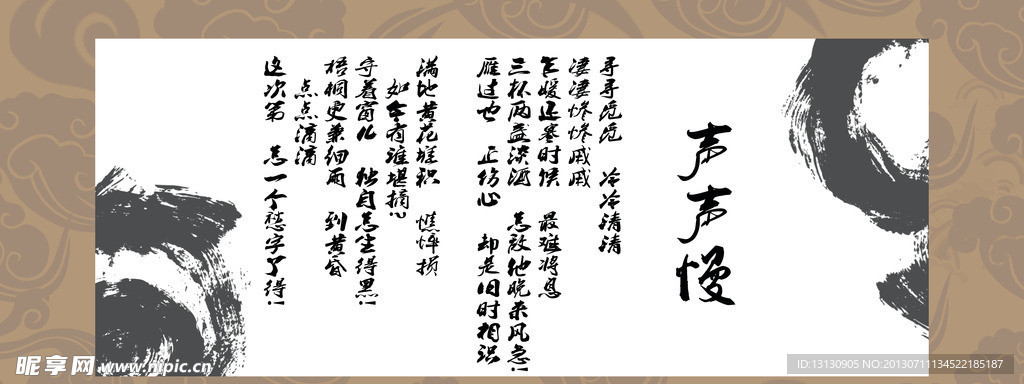 声声慢
寻寻觅觅 冷冷清清
凄凄惨惨戚戚
乍暖还寒时候 最难将息
三杯两盏淡酒 怎敌他晚来风急!
雁过也 正伤心 却是旧时相识
满地黄花堆积 憔悴损
如今有谁堪摘?
守着窗儿 独自怎生得黑!
梧桐更兼细雨 到黄昏
点点滴滴
这次第 怎一个愁字了得!
昵享网 www.nipic.cn
ID:13130905 NO:20130711134522185187